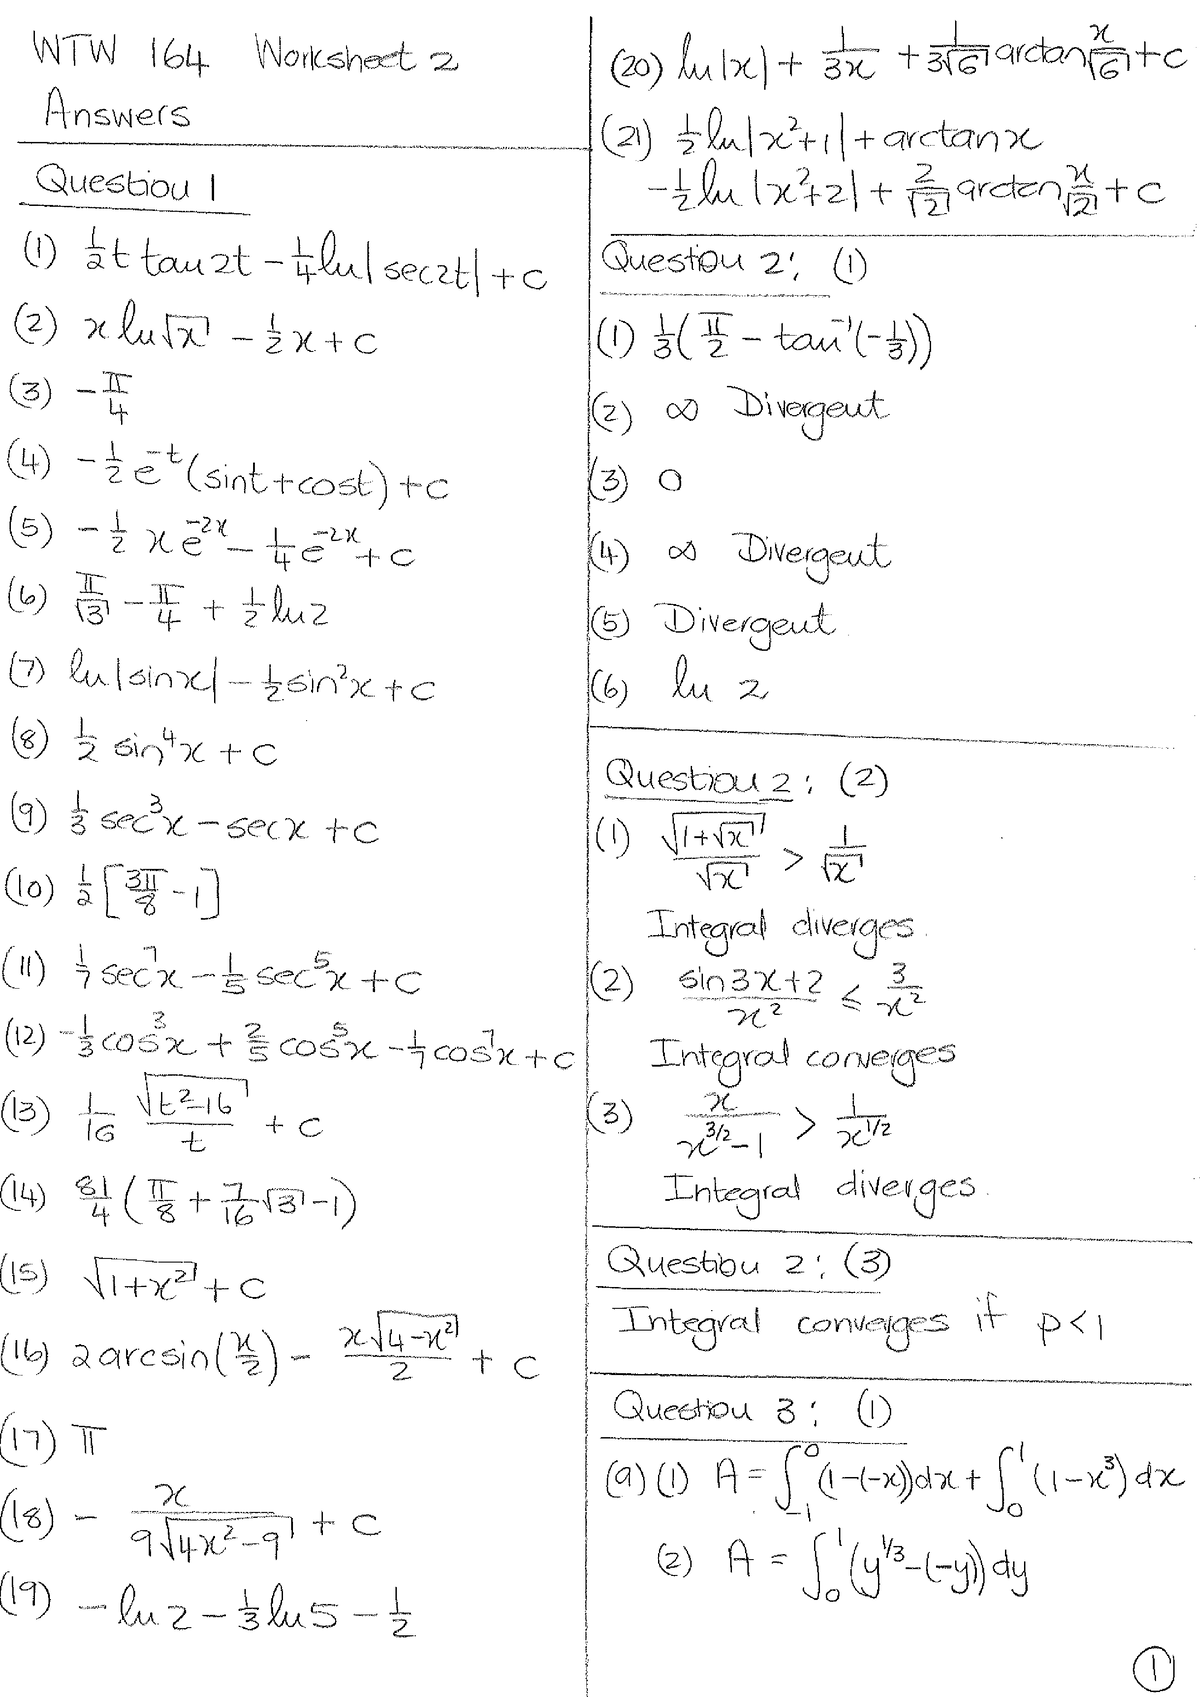 WTW 164 Worksheet 2
Answers
Question 1
(1) ½t tan2t − ¼ln|sec2t| + c
(2) x ln√x − ½x + c
(3) −π/4
(4) −½e^{−t}(sint + cost) + c
(5) −½ x e^{−2x} − ¼e^{−2x} + c
(6) π/√3 − π/4 + ½ ln2
(7) ln|sinx| − ½sin²x + c
(8) ½ sin⁴x + c
(9) ⅓ sec³x − secx + c
(10) ½[3π/8 − 1]
(11) 1/7 sec⁷x − 1/5 sec⁵x + c
(12) −⅓cos³x + 2/5 cos⁵x − 1/7 cos⁷x + c
(13) 1/16 √(t²−16)/t + c
(14) 81/4 (π/8 + 7/16 √3 − 1)
(15) √(1+x²) + c
(16) 2arcsin(x/2) − x√(4−x²)/2 + c
(17) π
(18) − x/(9√(4x²−9)) + c
(19) −ln2 − ⅓ln5 − ½
(20) ln|x| + 1/(3x) + 1/(3√6) arctan x/√6 + c
(21) ½ln|x²+1| + arctanx
−½ln|x²+2| + 2/√2 arctan x/√2 + c
Question 2: (1)
(1) ⅓(π/2 − tan⁻¹(−⅓))
(2) ∞ Divergent
(3) 0
(4) ∞ Divergent
(5) Divergent
(6) ln 2
Question 2: (2)
(1) √(1+√x)/√x > 1/√x
Integral diverges.
(2) (sin3x+2)/x² ≤ 3/x²
Integral converges
(3) x/(x^{3/2}−1) > 1/x^{1/2}
Integral diverges.
Question 2: (3)
Integral converges if p<1
Question 3: (1)
(a)(1) A = ∫₋₁⁰ (1−(−x))dx + ∫₀¹ (1−x³)dx
(2) A = ∫₀¹ (y^{1/3}−(−y))dy
1